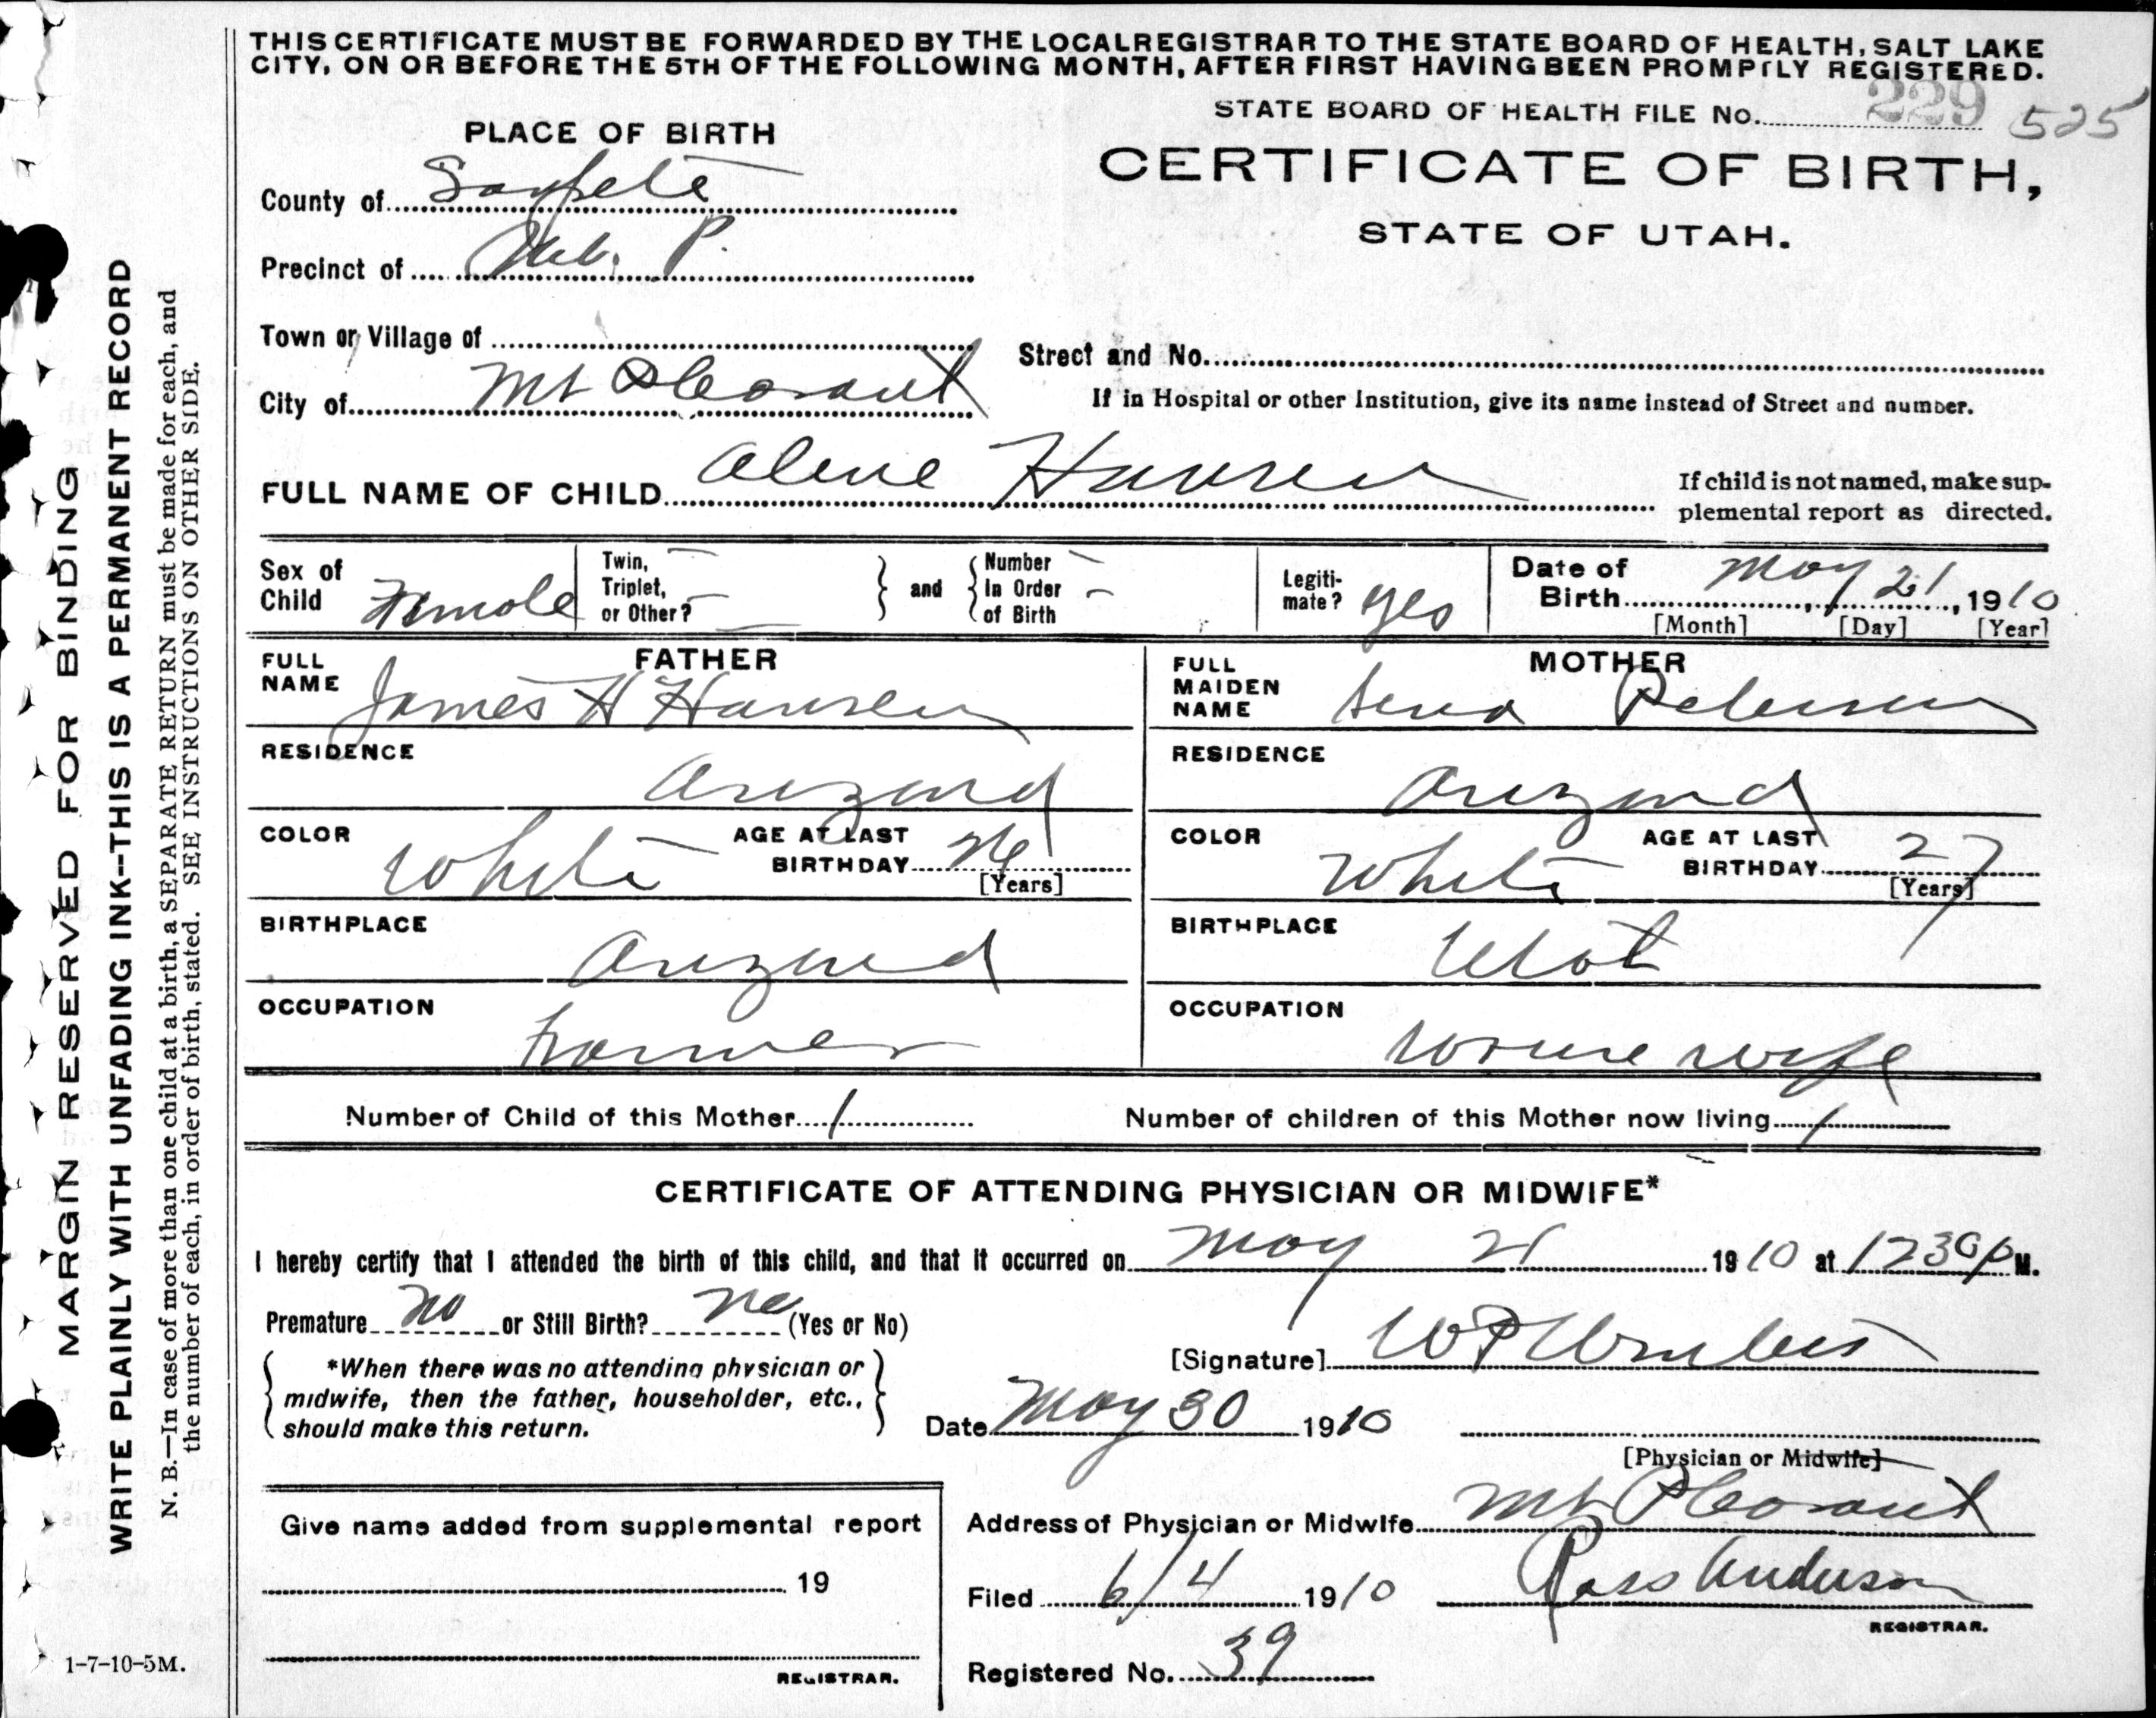 THIS CERTIFICATE MUST BE FORWARDED BY THE LOCAL REGISTRAR TO THE STATE BOARD OF HEALTH, SALT LAKE
CITY, ON OR BEFORE THE 5TH OF THE FOLLOWING MONTH, AFTER FIRST HAVING BEEN PROMPTLY REGISTERED.
STATE BOARD OF HEALTH FILE No. 229 525
PLACE OF BIRTH
CERTIFICATE OF BIRTH,
STATE OF UTAH.
County of Sanpete
Precinct of P.
Town or Village of
Street and No.
City of Mt Pleasant
If in Hospital or other Institution, give its name instead of Street and number.
FULL NAME OF CHILD Alene Hansen
If child is not named, make sup-
plemental report as directed.
Sex of Child Female
Twin, Triplet, or Other? —
and
Number In Order of Birth —
Legiti-mate? yes
Date of Birth May 21, 1910
[Month] [Day] [Year]
FATHER
FULL NAME James H Hansen
RESIDENCE Arizona
COLOR White
AGE AT LAST BIRTHDAY 26
[Years]
BIRTHPLACE Arizona
OCCUPATION Farmer
MOTHER
FULL MAIDEN NAME Sena Petersen
RESIDENCE Arizona
COLOR White
AGE AT LAST BIRTHDAY 27
[Years]
BIRTHPLACE Utah
OCCUPATION wife
Number of Child of this Mother 1
Number of children of this Mother now living 1
CERTIFICATE OF ATTENDING PHYSICIAN OR MIDWIFE*
I hereby certify that I attended the birth of this child, and that it occurred on May 21 1910 at 1230 P M.
Premature no or Still Birth? no (Yes or No)
*When there was no attending physician or
midwife, then the father, householder, etc.,
should make this return.
[Signature] W P
Date May 30 1910
[Physician or Midwife]
Address of Physician or Midwife Mt Pleasant
Filed 6/4 1910
Ross Anderson
REGISTRAR.
Registered No. 39
Give name added from supplemental report
19
REGISTRAR.
1-7-10-5M.
MARGIN RESERVED FOR BINDING
WRITE PLAINLY WITH UNFADING INK--THIS IS A PERMANENT RECORD
N. B.—In case of more than one child at a birth, a SEPARATE RETURN must be made for each, and
the number of each, in order of birth, stated. SEE INSTRUCTIONS ON OTHER SIDE.